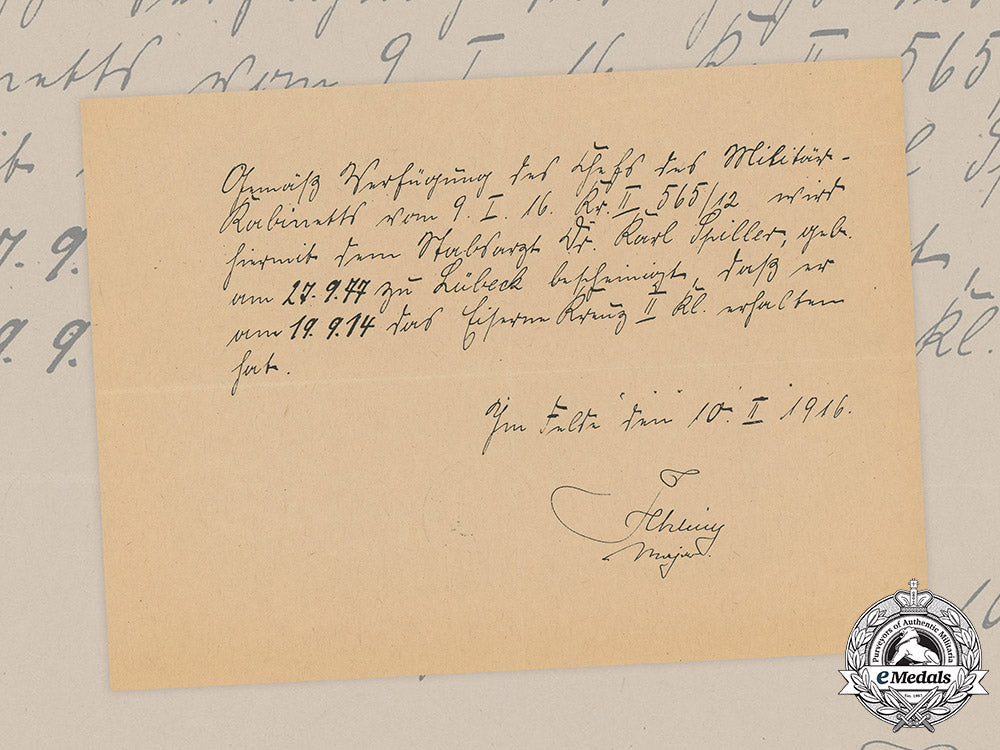 Gemäß Verfügung des Chefs des Militär-
Kabinetts vom 9. I. 16. Nr. II 565/12 wird
hiermit dem Stabsarzt Dr. Karl Spiller, geb.
am 27.9.77 zu Lübeck bescheinigt, daß er
am 19.9.14 das Eiserne Kreuz II Kl. erhalten
hat.
Im Felde den 10. II 1916.
Major.
Purveyors of Authentic Militaria
eMedals